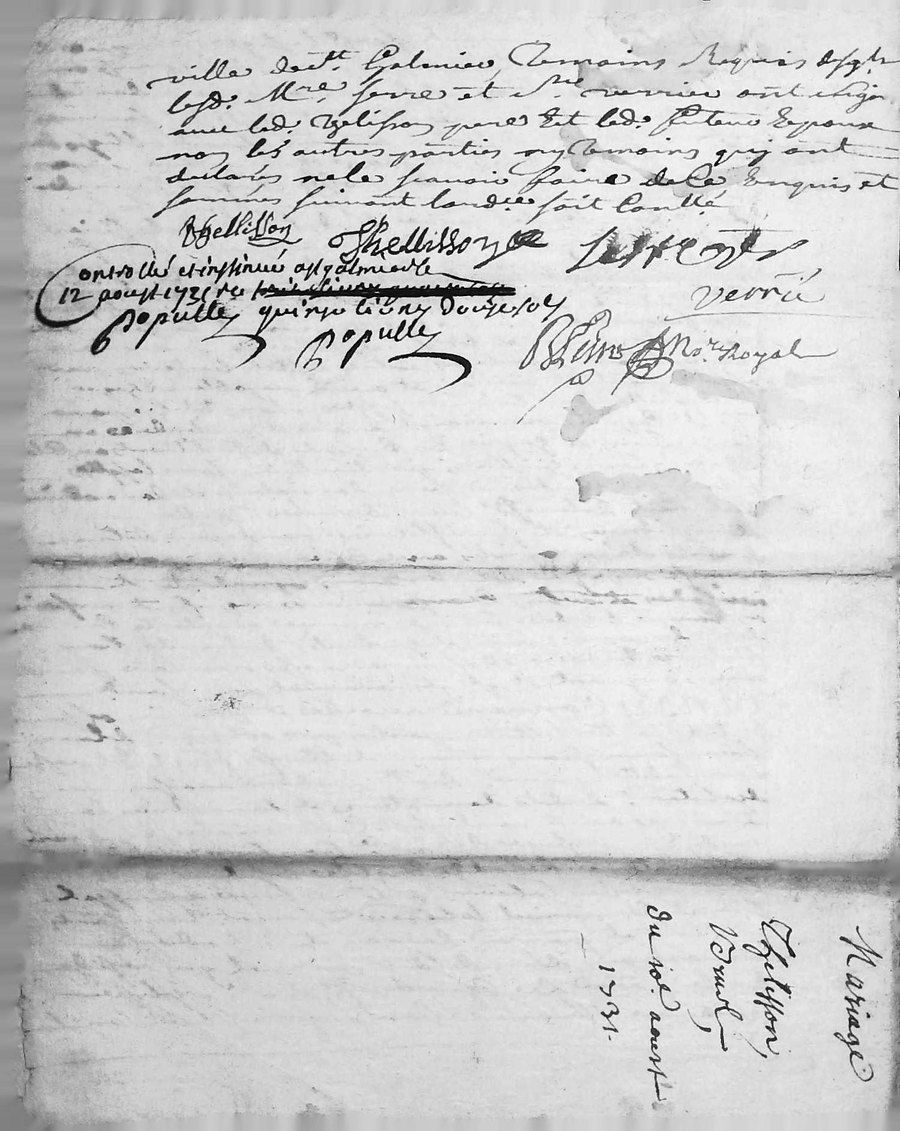 ville de St Galmier Temoins Requis
lesd. Mre. serre et Sr. verrier ont signé
avec led. Thelisson pere Et led. futeur Epoux
non les autres parties ny Temoins quy ont
declarés ne le scavoir faire de ce Enquis et
sommés suivant lord.ce soit Contté
Thellisson Thellisson
ontrollé et insinué a st galmier le
12 aoust 1731 re
verrié
populle quinze livres douze sols
populle
Nore. Royal
Mariage
Thelisson,
Du 10e. aoust
1731.